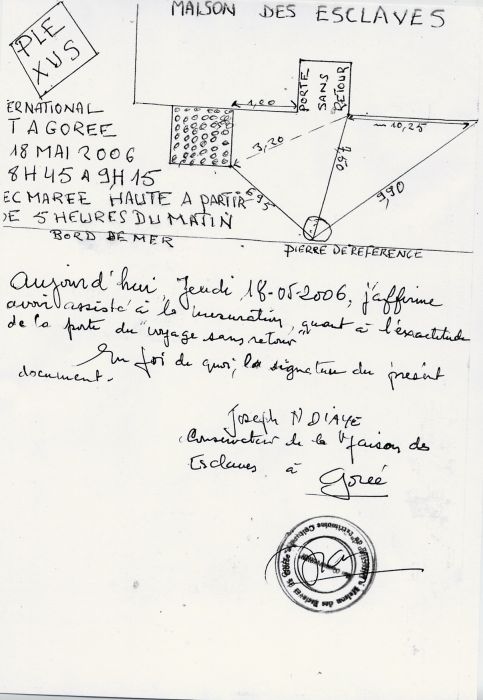 MAISON DES ESCLAVES
PLEXUS
PORTE
SANS
RETOUR
1,00
10,25
3,20
6,95
9,90
ERNATIONAL
T A GOREE
18 MAI 2006
8H45 A 9H15
EC MAREE HAUTE A PARTIR
DE 5 HEURES DU MATIN
BORD DE MER
PIERRE DE REFERENCE
Aujourd'hui, Jeudi, 18-05-2006, j'affirme
avoir assisté à la mesuration, quant à l'exactitude
de la porte du "voyage sans retour"
En foi de quoi, la signature du présent
document.
Joseph NDIAYE
Conservateur de la Maison des
Esclaves à
Gorée